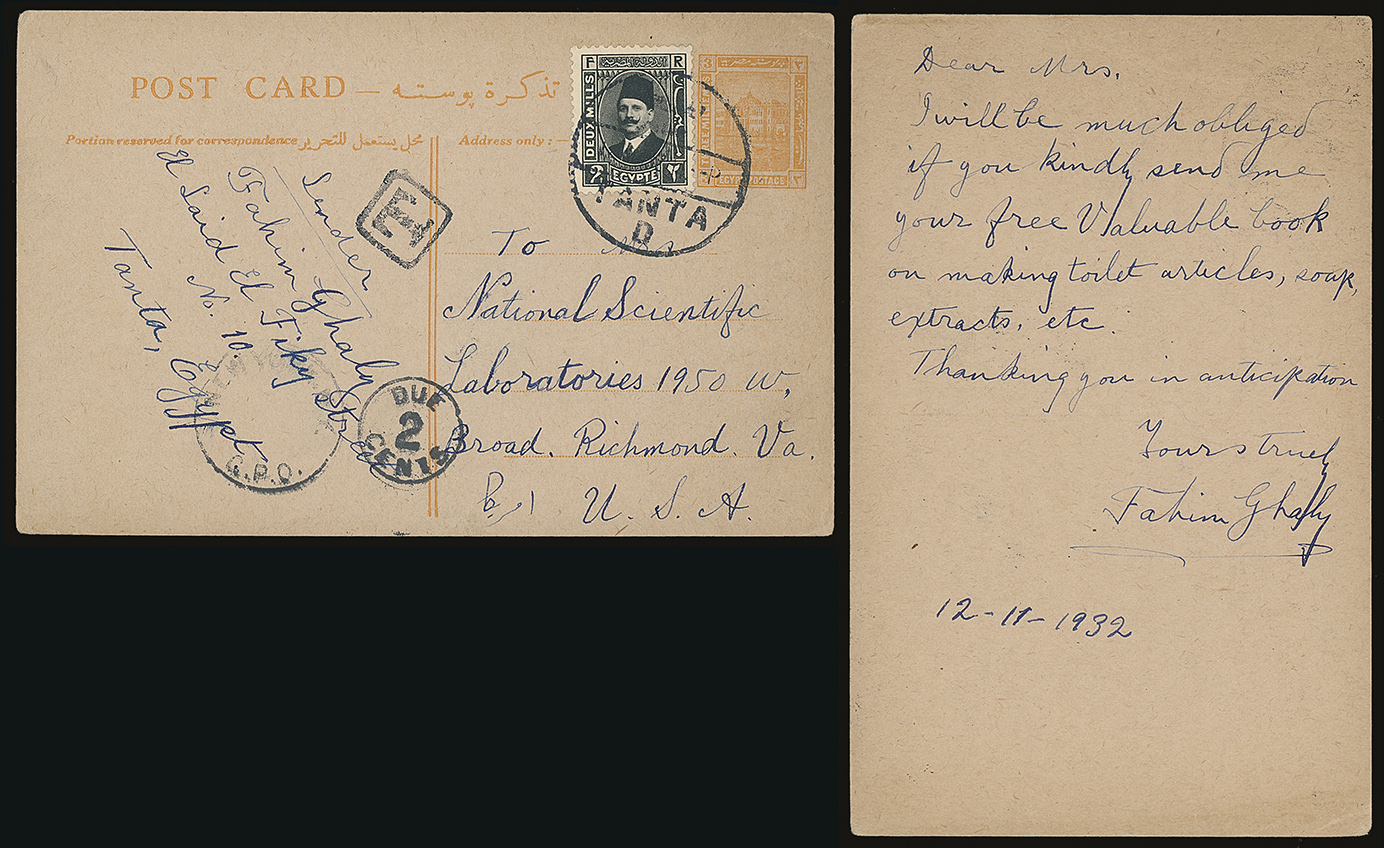 POST CARD — تذكرة پوسته
Portion reserved for correspondence محل يستعمل للتحرير
Address only :—
F R
DEUX MILLS
2 EGYPTE ٢
3 ٣
THREE MILLIEMES
EGYPT POSTAGE ٣
TANTA
D
Sender
Fahim Ghaly
El Said El Fiky Street
No. 10.
Tanta, Egypt
To Mrs
National Scientific
Laboratories 1950 W,
Broad. Richmond. Va.
U. S. A.
NEW YORK
G.P.O.
DUE
2
CENTS
Dear Mrs.
I will be much obliged
if you kindly send me
your free Valuable book
on making toilet articles, soap,
extracts, etc.
Thanking you in anticipation
Yours truely
Fahim Ghaly
12-11-1932